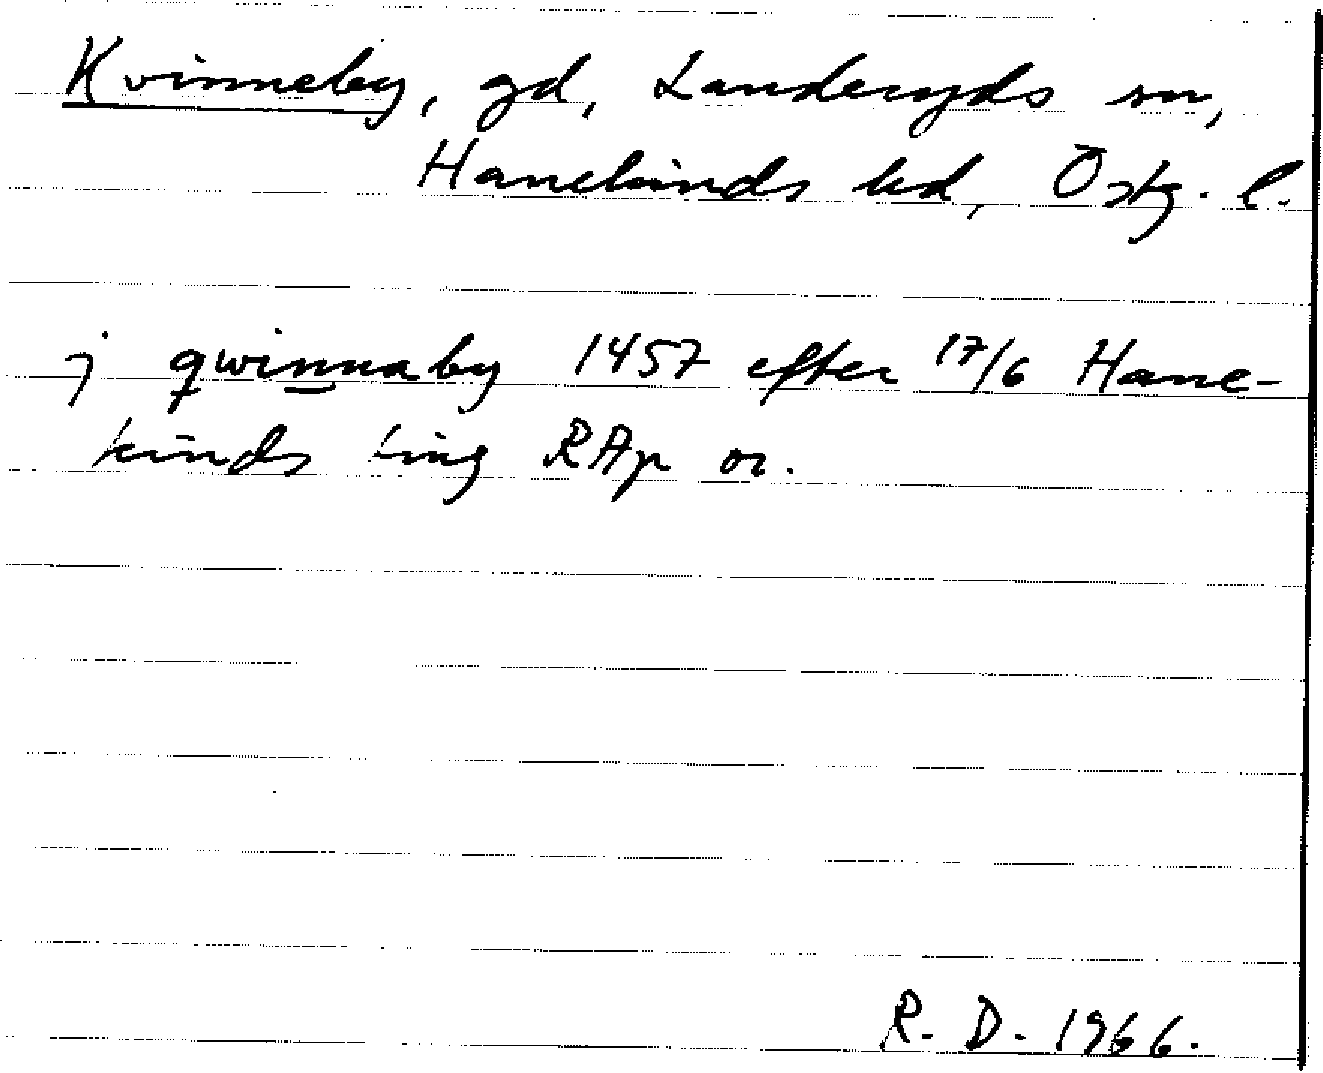 Kvinneby, gd, Landeryds sn,
Hanekinds hd, Östg. l.
j qwinnaby 1457 efter 17/6 Hane-
kinds ting RAp or.
R. D. 1966.